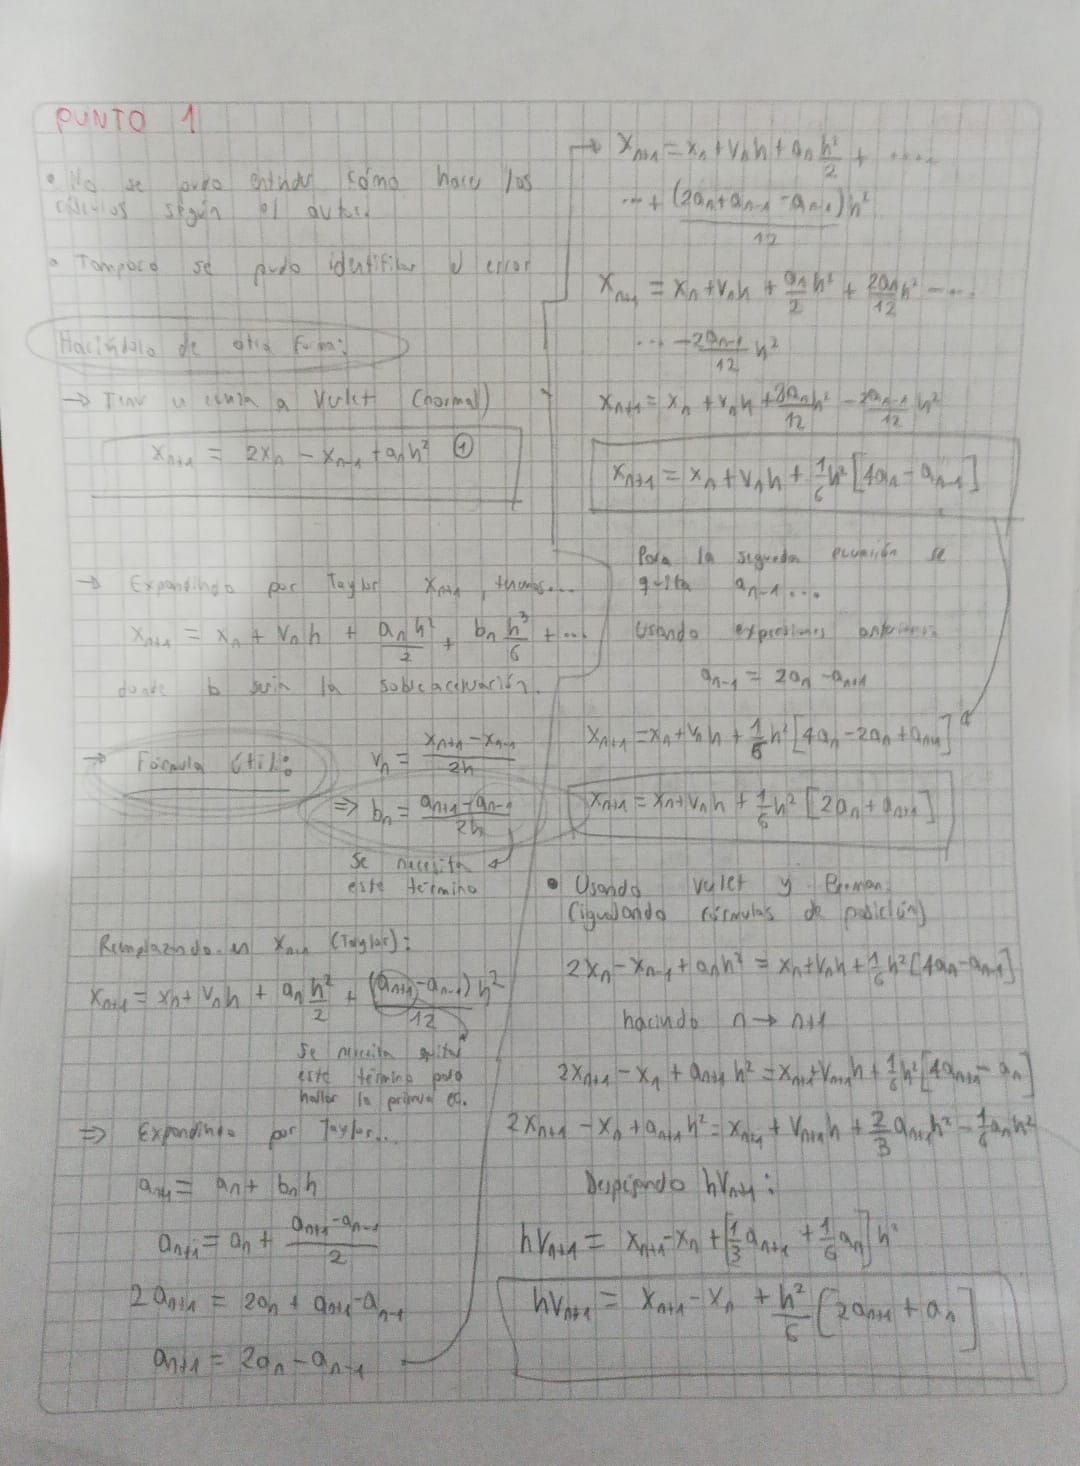 PUNTO 1
• No se pudo entender cómo hacer los
cálculos según el autor.
• Tampoco se pudo identificar el error
Haciéndolo de otra forma:
→ Tener en cuenta a Verlet (normal)
x_{n+1} = 2x_n - x_{n-1} + a_n h² ①
→ Expandiendo por Taylor x_{n+1}, tenemos...
x_{n+1} = x_n + v_n h + a_n h²/2 + b_n h³/6 + ...
donde b sería la sobreaceleración.
→ Fórmula útil: v_n = (x_{n+1} - x_{n-1})/2h
⇒ b_n = (a_{n+1} - a_{n-1})/2h
se necesita
este término
Remplazando en x_{n+1} (Taylor):
x_{n+1} = x_n + v_n h + a_n h²/2 + (a_{n+1} - a_{n-1})h²/12
se necesita quitar
este término para
hallar la primera ec.
⇒ Expandiendo por Taylor...
a_{n+1} = a_n + b_n h
a_{n+1} = a_n + (a_{n+1} - a_{n-1})/2
2a_{n+1} = 2a_n + a_{n+1} - a_{n-1}
a_{n+1} = 2a_n - a_{n-1}
→ x_{n+1} = x_n + v_n h + a_n h²/2 + ....
... + (2a_n + a_{n-1} - a_{n-1})h²/12
x_{n+1} = x_n + v_n h + a_n/2 h² + 2a_n/12 h² - ...
... - 2a_{n-1}/12 h²
x_{n+1} = x_n + v_n h + 8a_n/12 h² - 2a_{n-1}/12 h²
x_{n+1} = x_n + v_n h + 1/6 h² [4a_n - a_{n-1}]
Para la segunda ecuación se
quita a_{n-1}...
Usando expresiones anteriores
a_{n-1} = 2a_n - a_{n+1}
x_{n+1} = x_n + v_n h + 1/6 h² [4a_n - 2a_n + a_{n+1}]
x_{n+1} = x_n + v_n h + 1/6 h² [2a_n + a_{n+1}]
• Usando verlet y Beeman
(igualando fórmulas de posición)
2x_n - x_{n-1} + a_n h² = x_n + v_n h + 1/6 h² [4a_n - a_{n-1}]
haciendo n → n+1
2x_{n+1} - x_n + a_{n+1} h² = x_{n+1} + v_{n+1} h + 1/6 h² [4a_{n+1} - a_n]
2x_{n+1} - x_n + a_{n+1} h² = x_{n+1} + v_{n+1} h + 2/3 a_{n+1} h² - 1/6 a_n h²
Despejando hv_{n+1}:
hv_{n+1} = x_{n+1} - x_n + [1/3 a_{n+1} + 1/6 a_n] h²
hv_{n+1} = x_{n+1} - x_n + h²/6 [2a_{n+1} + a_n]